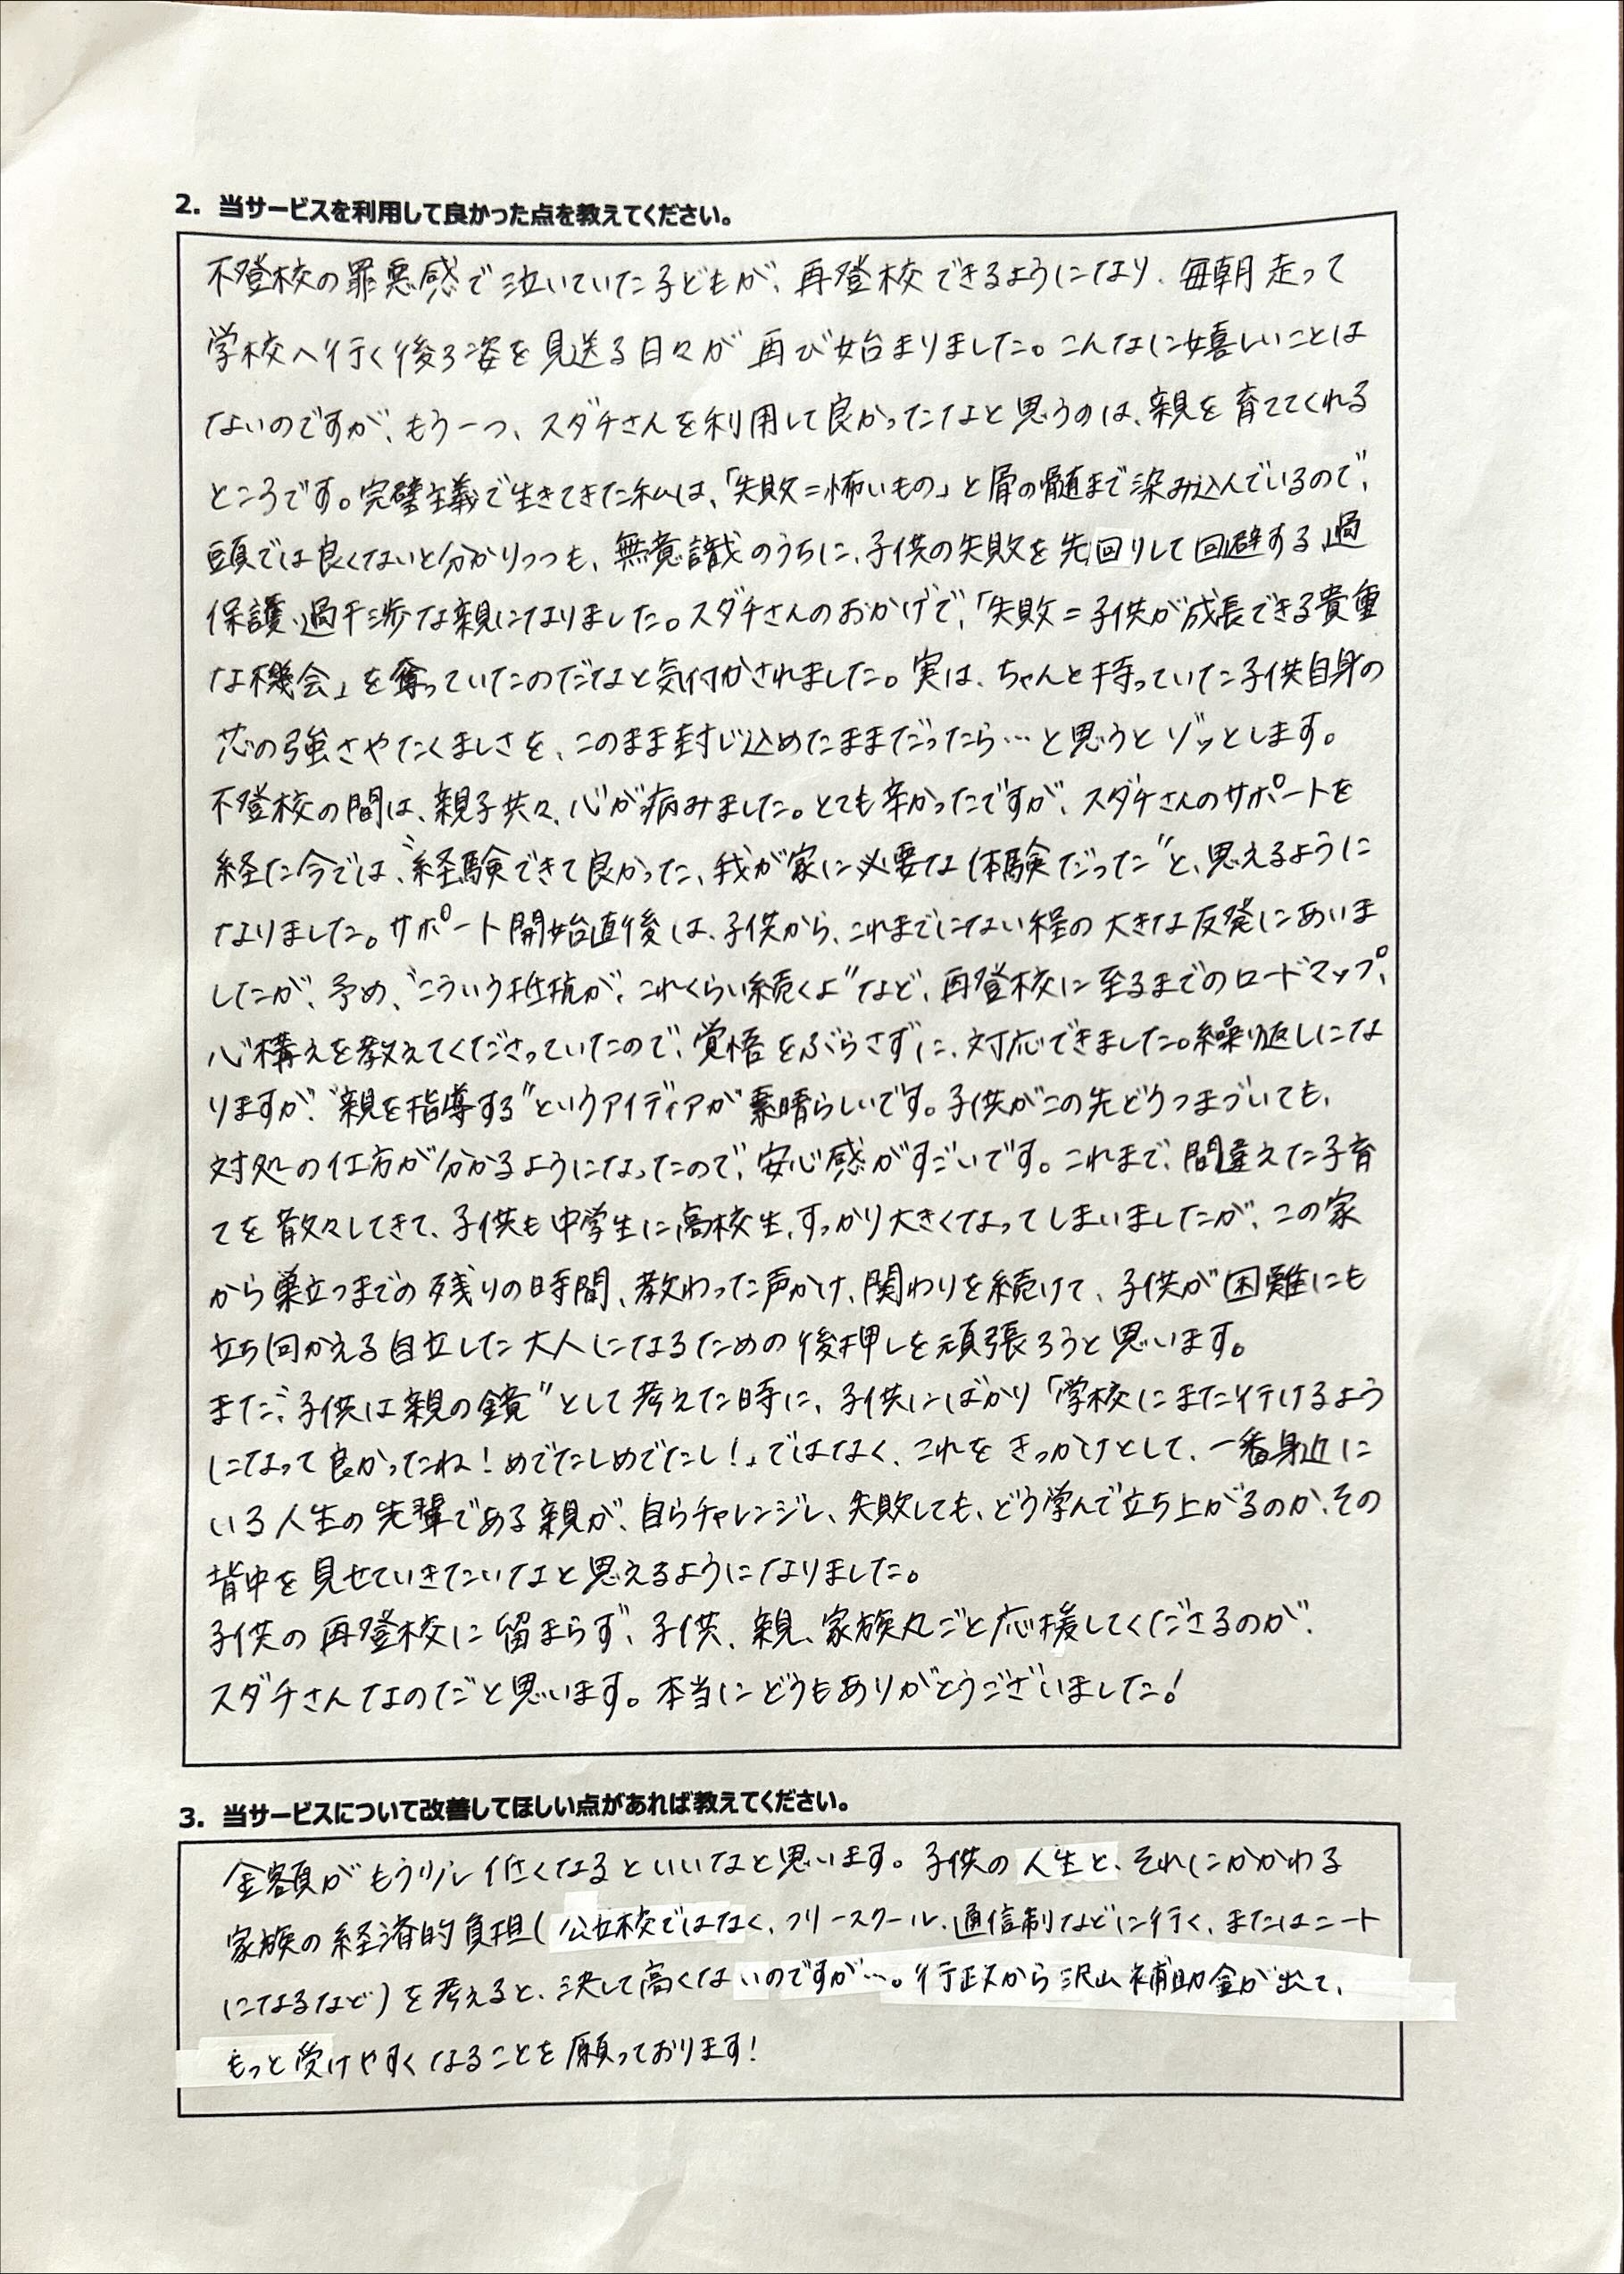 2. 当サービスを利用して良かった点を教えてください。
不登校の罪悪感で泣いていた子どもが、再登校できるようになり、毎朝走って
学校へ行く後ろ姿を見送る日々が再び始まりました。こんなに嬉しいことは
ないのですが、もう一つ、スダチさんを利用して良かったなと思うのは、親を育ててくれる
ところです。完璧主義で生きてきた私は、「失敗=怖いもの」と骨の髄まで染み込んでいるので、
頭では良くないと分かりつつも、無意識のうちに、子供の失敗を先回りして回避する過
保護、過干渉な親になりました。スダチさんのおかげで、「失敗=子供が成長できる貴重
な機会」を奪っていたのだなと気付かされました。実は、ちゃんと持っていた子供自身の
芯の強さやたくましさを、このまま封じ込めたままだったら…と思うとゾッとします。
不登校の間は、親子共々、心が病みました。とても辛かったですが、スダチさんのサポートを
経た今では、〝経験できて良かった、我が家に必要な体験だった〟と、思えるように
なりました。サポート開始直後は、子供から、これまでにない程の大きな反発にあいま
したが、予め、〝こういう抵抗が、これくらい続くよ〟など、再登校に至るまでのロードマップ、
心構えを教えてくださっていたので、覚悟をぶらさずに、対応できました。繰り返しにな
りますが、〝親を指導する〟というアイディアが素晴らしいです。子供がこの先どうつまづいても、
対処の仕方が分かるようになったので、安心感がすごいです。これまで、間違えた子育
てを散々してきて、子供も中学生に高校生、すっかり大きくなってしまいましたが、この家
から巣立つまでの残りの時間、教わった声かけ、関わりを続けて、子供が困難にも
立ち向かえる自立した大人になるための後押しを頑張ろうと思います。
また、〝子供は親の鏡〟として考えた時に、子供にばかり「学校にまた行けるよう
になって良かったね!めでたしめでたし!」ではなく、これをきっかけとして、一番身近に
いる人生の先輩である親が、自らチャレンジし、失敗しても、どう学んで立ち上がるのか、その
背中を見せていきたいなと思えるようになりました。
子供の再登校に留まらず、子供、親、家族丸ごと応援してくださるのが、
スダチさんなのだと思います。本当にどうもありがとうございました!
3. 当サービスについて改善してほしい点があれば教えてください。
金額がもう少し低くなるといいなと思います。子供の人生と、それにかかわる
家族の経済的負担(公立校ではなく、フリースクール、通信制などに行く、またはニート
になるなど)を考えると、決して高くないのですが…。行政から沢山補助金が出て、
もっと受けやすくなることを願っております!